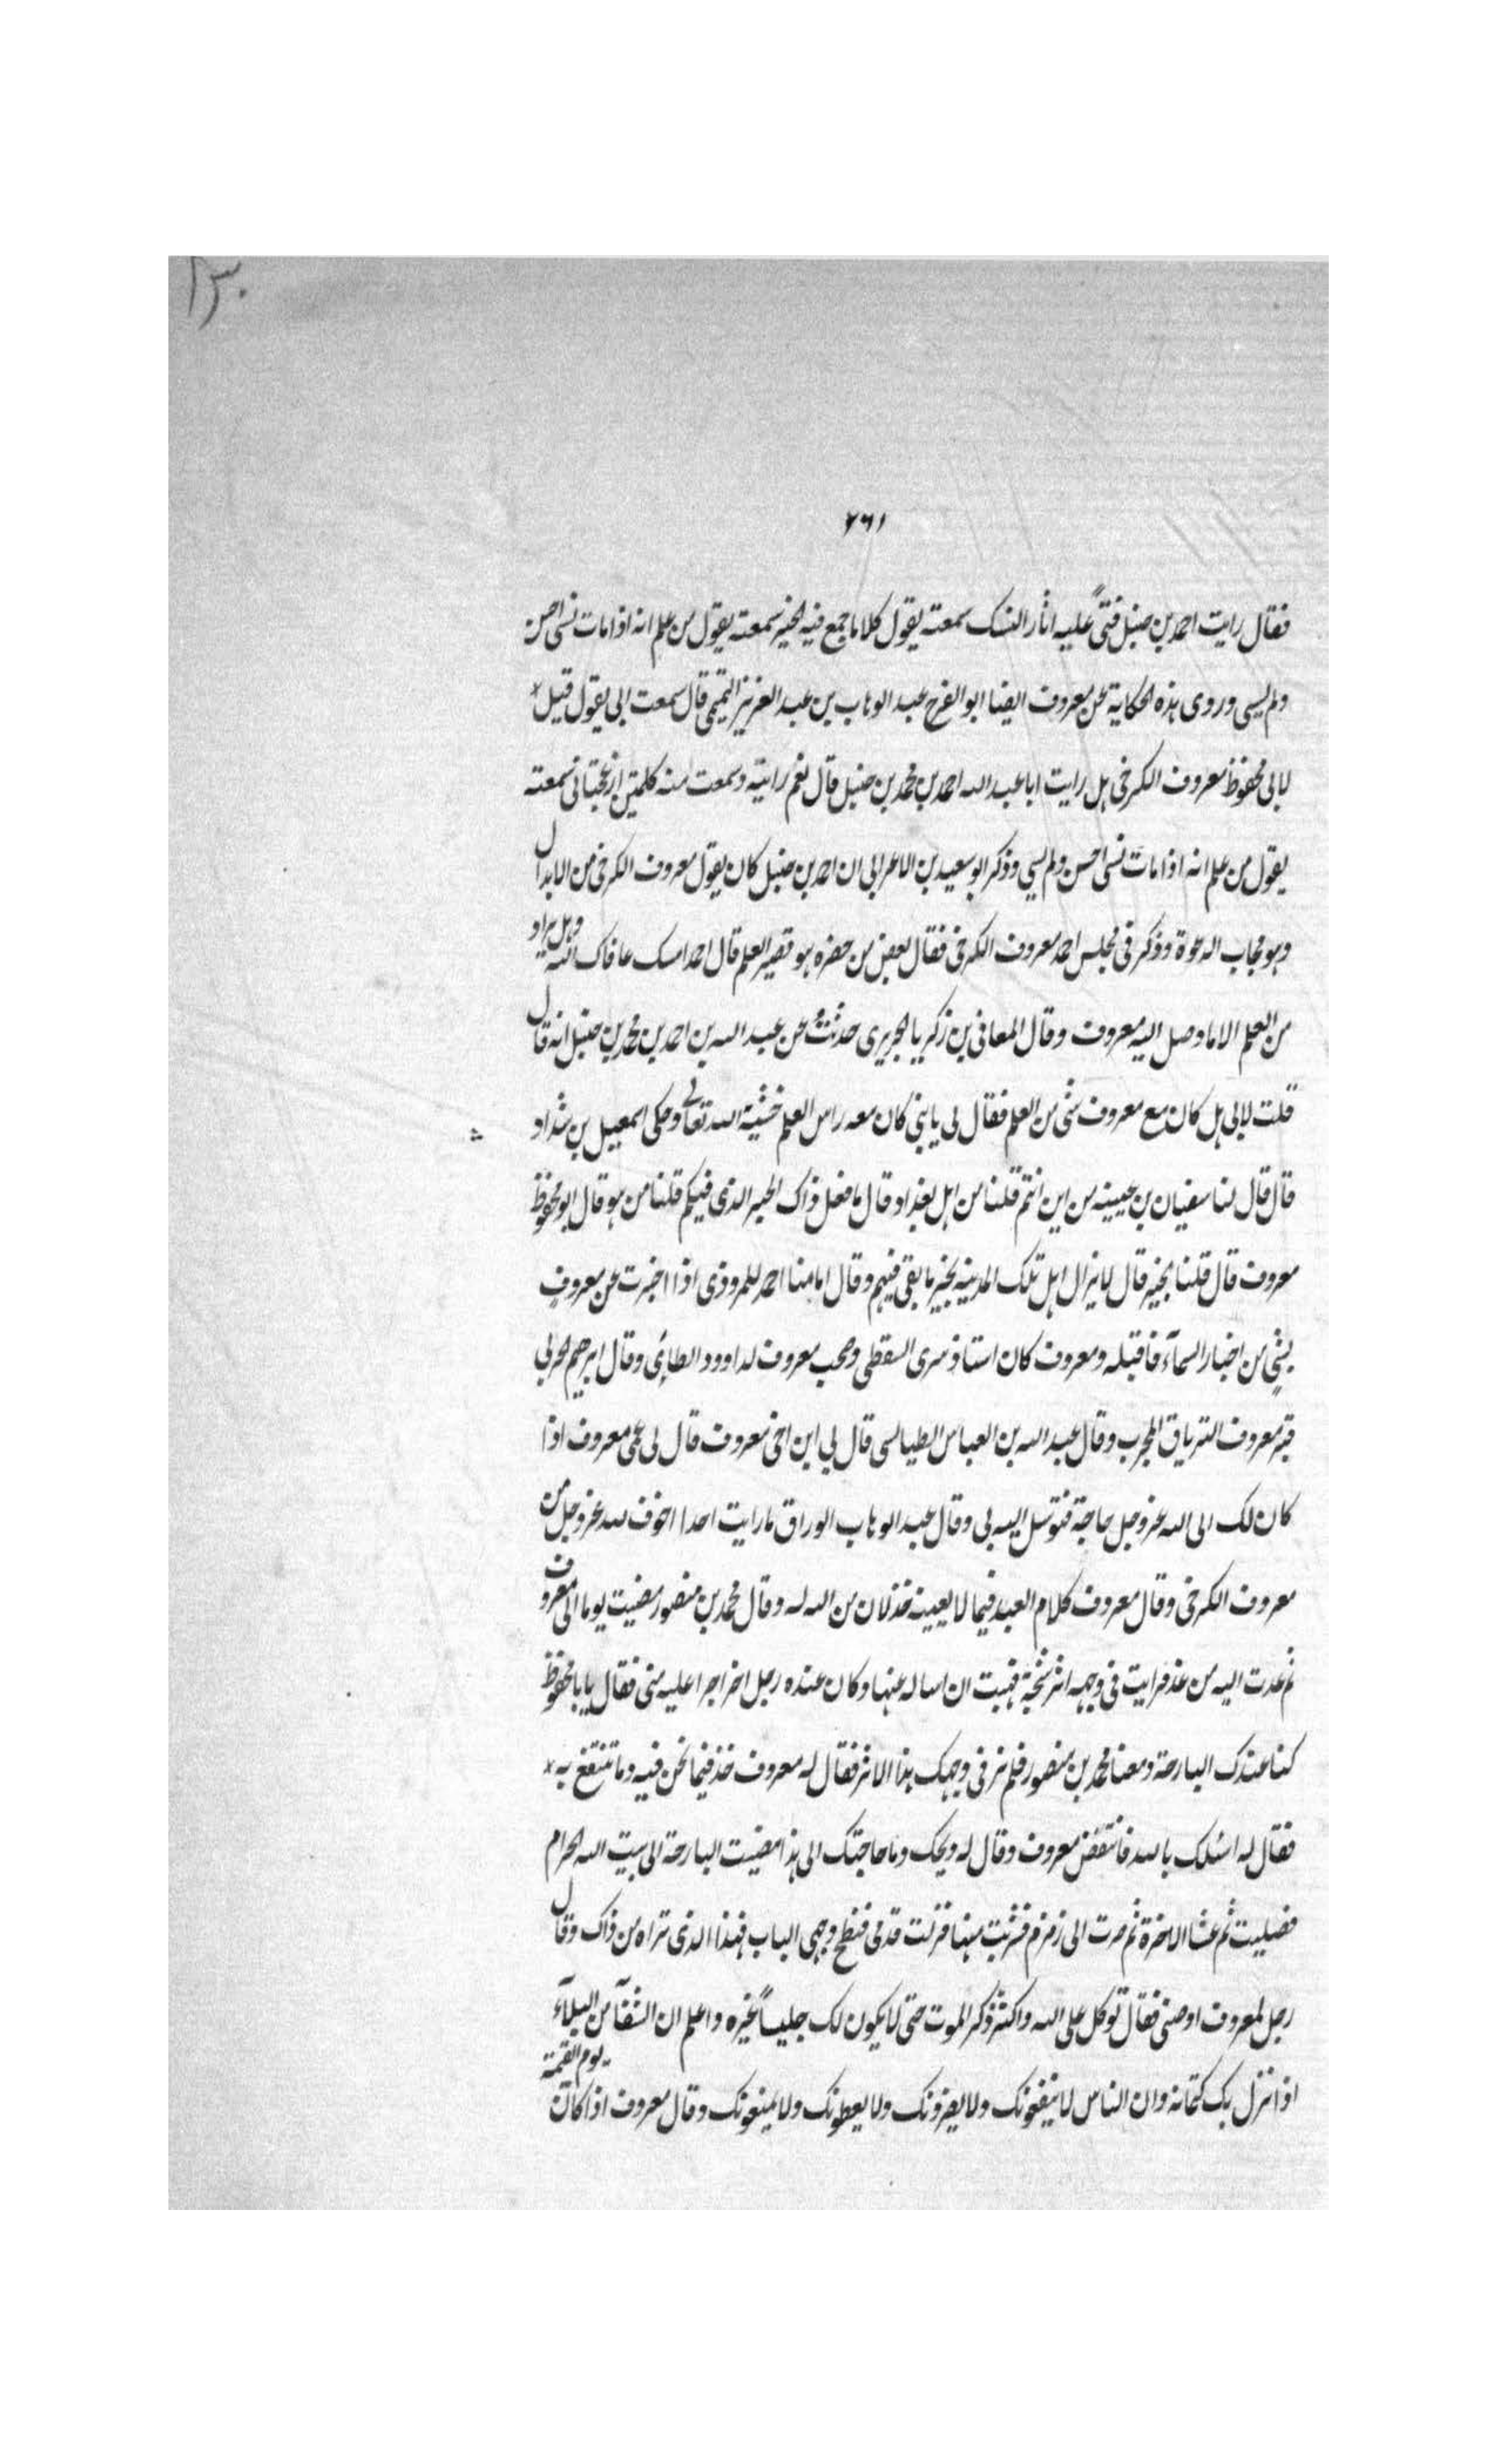 ١٣٠
٧٦١
فقال رايت احمد بن حنبل فتىً عليه اثار النسك سمعته يقول كلاما جمع فيه الخير سمعته يقول من علم انه اذا مات نسى احسن
ولم يسى وروى هذه الحكاية عن معروف ايضا ابو الفرج عبد الوهاب بن عبد العزيز التميمى قال سمعت ابى يقول قيل
لابى محفوظ معروف الكرخى هل رايت ابا عبد الله احمد بن محمد بن حنبل قال نعم رايته وسمعت منه كلمتين ازعجتانى سمعته
يقول من علم انه اذا مات نسى احسن ولم يسى وذكر ابو سعيد بن الاعرابى ان احمد بن حنبل كان يقول معروف الكرخى من الابدال
وهو مجاب الدعوة وذكر فى مجلس احمد معروف الكرخى فقال بعض من حضره هو قصير العلم قال احمد امسك عافاك الله وهل يراد
من العلم الا ما وصل اليه معروف وقال المعافى بن زكريا الجريرى حدثت عن عبد الله بن احمد بن محمد بن حنبل انه قال
قلت لابى هل كان مع معروف شى من العلم فقال لى يا بنى كان معه راس العلم خشية الله تعالى وحكى اسمعيل بن شداد
قال قال لنا سفيان بن عيينه من اين انتم قلنا من اهل بغداد وقال ما فعل ذاك الحبر الذى فيكم قلنا من هو قال ابو محفوظ
معروف قال قلنا بخير قال لا يزال اهل تلك المدينه بخير ما بقى فيهم وقال امامنا احمد للمروذى اذا اخبرت عن معروف
بشئ من اخبار السمآء فاقبله ومعروف كان استاذ سرى السقطى وصحب معروف لداوود الطائى وقال ابرهيم الحربى
قبر معروف الترياق المجرب وقال عبد الله بن العباس الطيالسى قال لى ابن اخى معروف قال لى عمى معروف اذا
كان لك الى الله عز وجل حاجة فتوسل اليه بى وقال عبد الوهاب الوراق ما رايت احدا اخوف لله عز وجل من
معروف الكرخى وقال معروف كلام العبد فيما لا يعنيه خذلان من الله له وقال محمد بن منصور مضيت يوما الى معروف
ثم عدت اليه من غد فرايت فى وجهه اثر شجة فهبت ان اساله عنها وكان عنده رجل اخر اجرا عليه منى فقال يا با محفوظ
كنا عندك البارحة ومعنا محمد بن منصور فلم نر فى وجهك هذا الاثر فقال له معروف خذ فيما نحن فيه وما تنتفع به
فقال له اسئلك بالله فانتفض معروف وقال له ويحك وما حاجتك الى هذا مضيت البارحة الى بيت الله الحرام
فصليت ثم عشا الاخرة ثم صرت الى زمزم فشربت منها فزلت قدمى فنطح وجهى الباب فهذا الذى تراه من ذاك وقال
رجل لمعروف اوصنى فقال توكل على الله واكثر ذكر الموت حتى لا يكون لك جليساً غيره واعلم ان الشفآ من البلآء
اذا نزل بك كتمانه وان الناس لا ينفعونك ولا يضرونك ولا يعطونك ولا يمنعونك وقال معروف اذا كان يوم القيمة